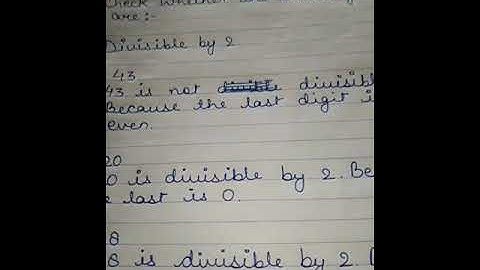 Check whether
are:-
Divisible by 2
43
43 is not divisibl
Because the last digit i
even.
20
0 is divisible by 2. Be
last is 0.
8
8 is divisible by 2.